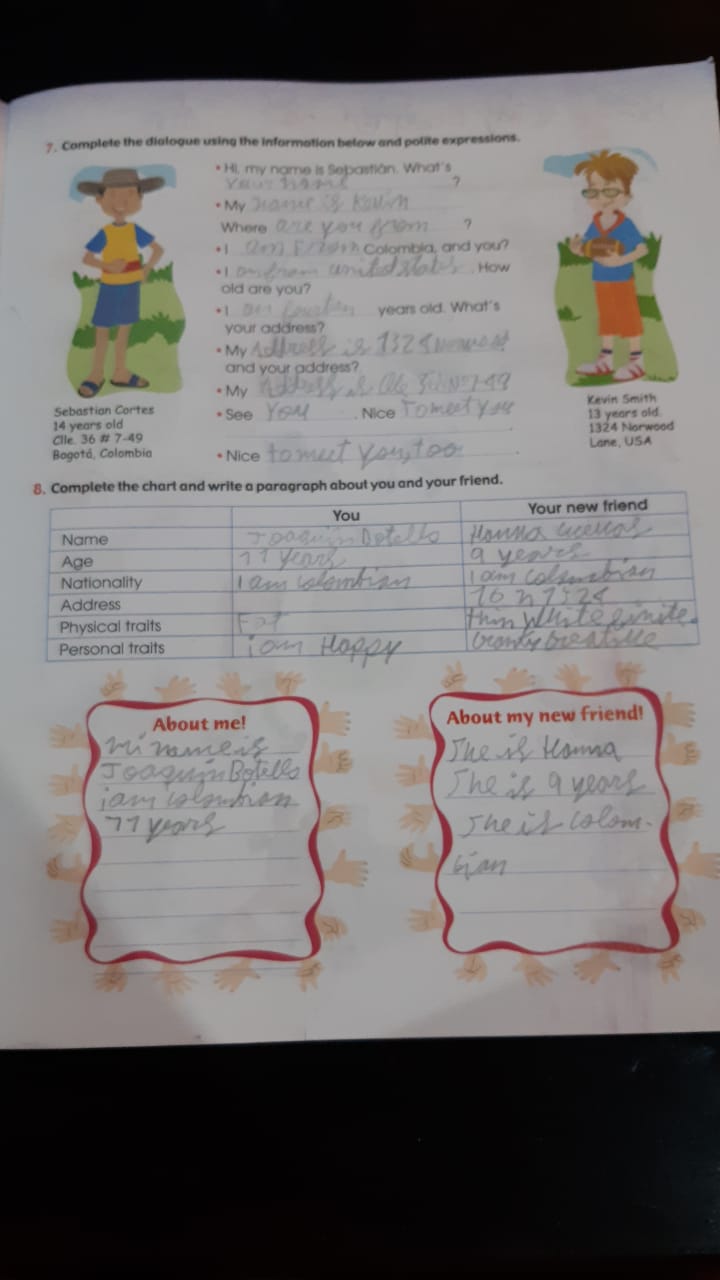 7. Complete the dialogue using the information below and polite expressions.
• Hi, my name is Sebastián. What's
your name ?
• My name is Kevin
Where are you from ?
• I am from Colombia, and you?
• I am from united states . How
old are you?
• I am fourteen years old. What's
your address?
• My Address is 1324
and your address?
• My Address is
• See You . Nice To meet you
• Nice to meet you, too .
Sebastian Cortes
14 years old
Clle. 36 # 7-49
Bogotá, Colombia
Kevin Smith
13 years old.
1324 Norwood
Lane, USA
8. Complete the chart and write a paragraph about you and your friend.
You Your new friend
Name Joaquín Botello Hanna
Age 11 years 9 years
Nationality I am colombian I am colombian
Address
Physical traits Fat thin White
Personal traits i am Happy
About me!
mi name is
Joaquín Botello
i am colombian
11 years
About my new friend!
She is Hanna
She is 9 years
She is colom-
bian